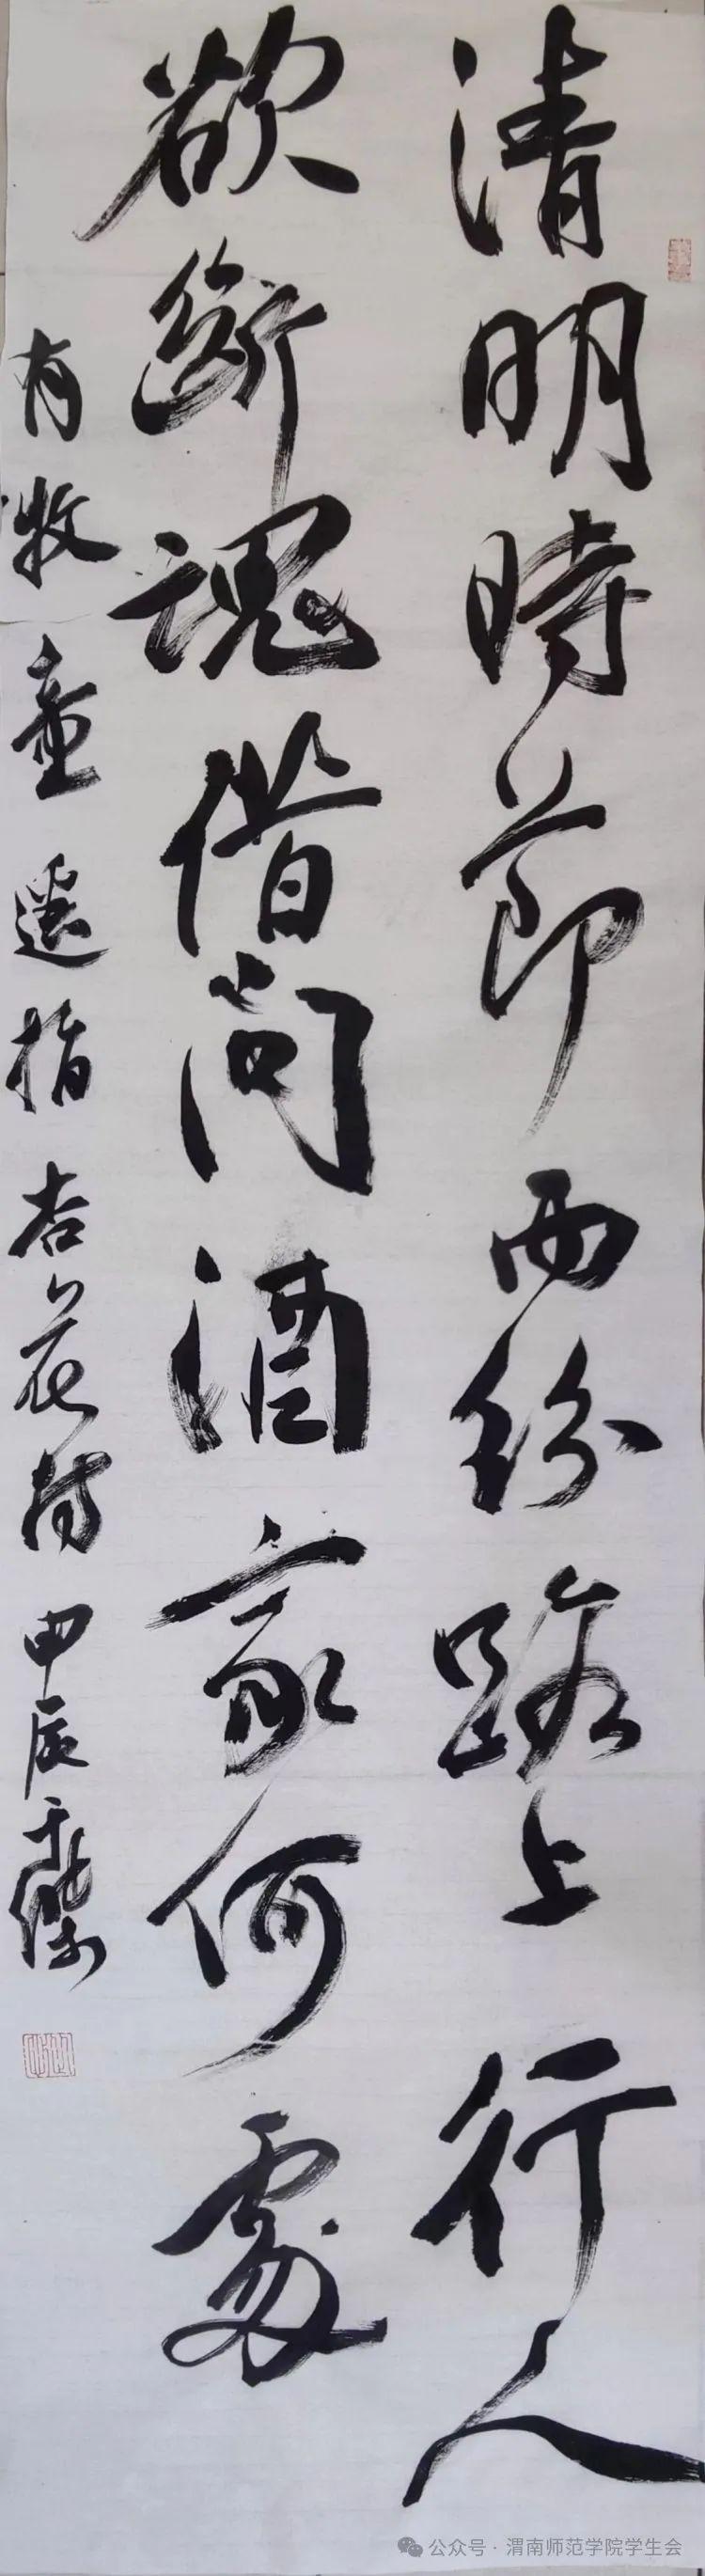 清明時節雨紛路上行人
欲斷魂借問酒家何處
有牧童遥指杏花村 甲辰
公众号 · 渭南师范学院学生会